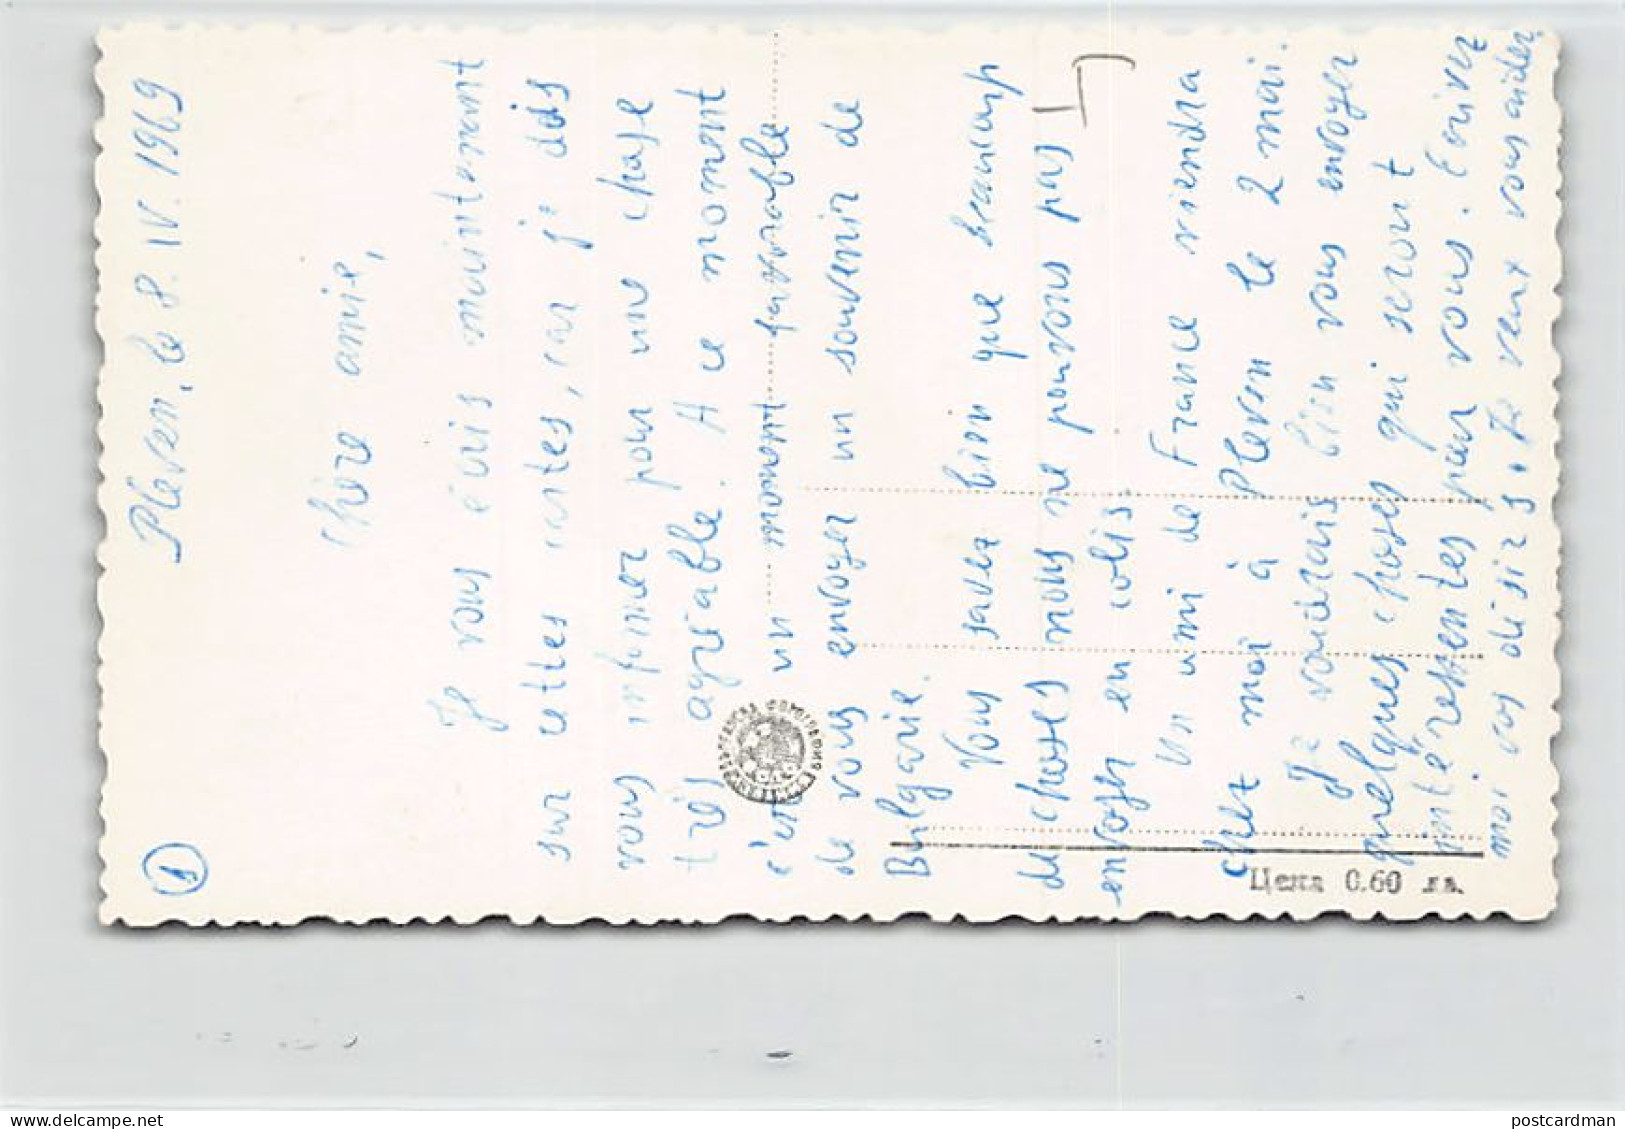 1
Pléven, le 8. IV. 1969
Chère amie,
Je vous écris maintenant
sur cettes cartes, car je dois
vous informer pour une chose
très agréable. A ce momant
c'est un momant favorable
de vous envoyer un souvenir de
Bulgarie.
Vous savez bien que beaucoup
de choses nous ne pouvons pas
envoyer en colis.
Un ami de France viendra
chez moi à Pleven le 2 mai.
Je voudrais bien vous envoyer
quelques choses qui seront
intéressentes pour vous. Ecrivez
moi vos désirs. Je veux vous aider,
БЪЛГАРСКА ФОТОГРАФИЯ
Цена 0.60 лв.
postcardman